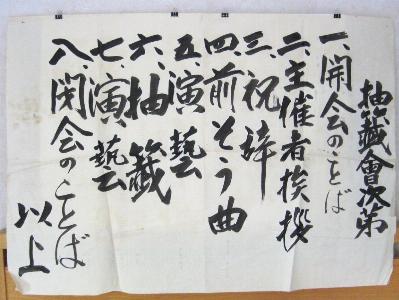 抽籤會次第
一、開会のことば
二、主催者挨拶
三、祝辞
四、前そう曲
五、演藝
六、抽籤
七、演藝
八、閉会のことば
以上